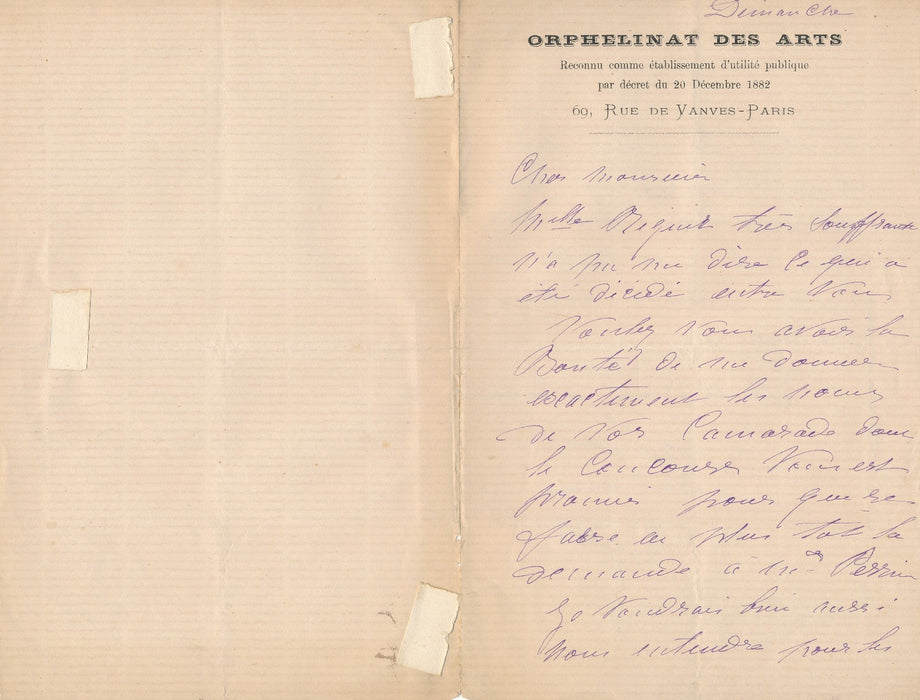 Dimanche
ORPHELINAT DES ARTS
Reconnu comme établissement d'utilité publique
par décret du 20 Décembre 1882
69, RUE DE VANVES-PARIS
Cher monsieur
Mlle très souffrante
n'a pu me dire ce qui a
été décidé entre vous
Voulez vous avoir la
Bonté de me donner
exactement les noms
de vos Camarade dont
le Concours Vous est
promis pour que je
fasse au plus tôt la
demande à Perrin
Je Voudrais bien aussi
nous entendre pour les